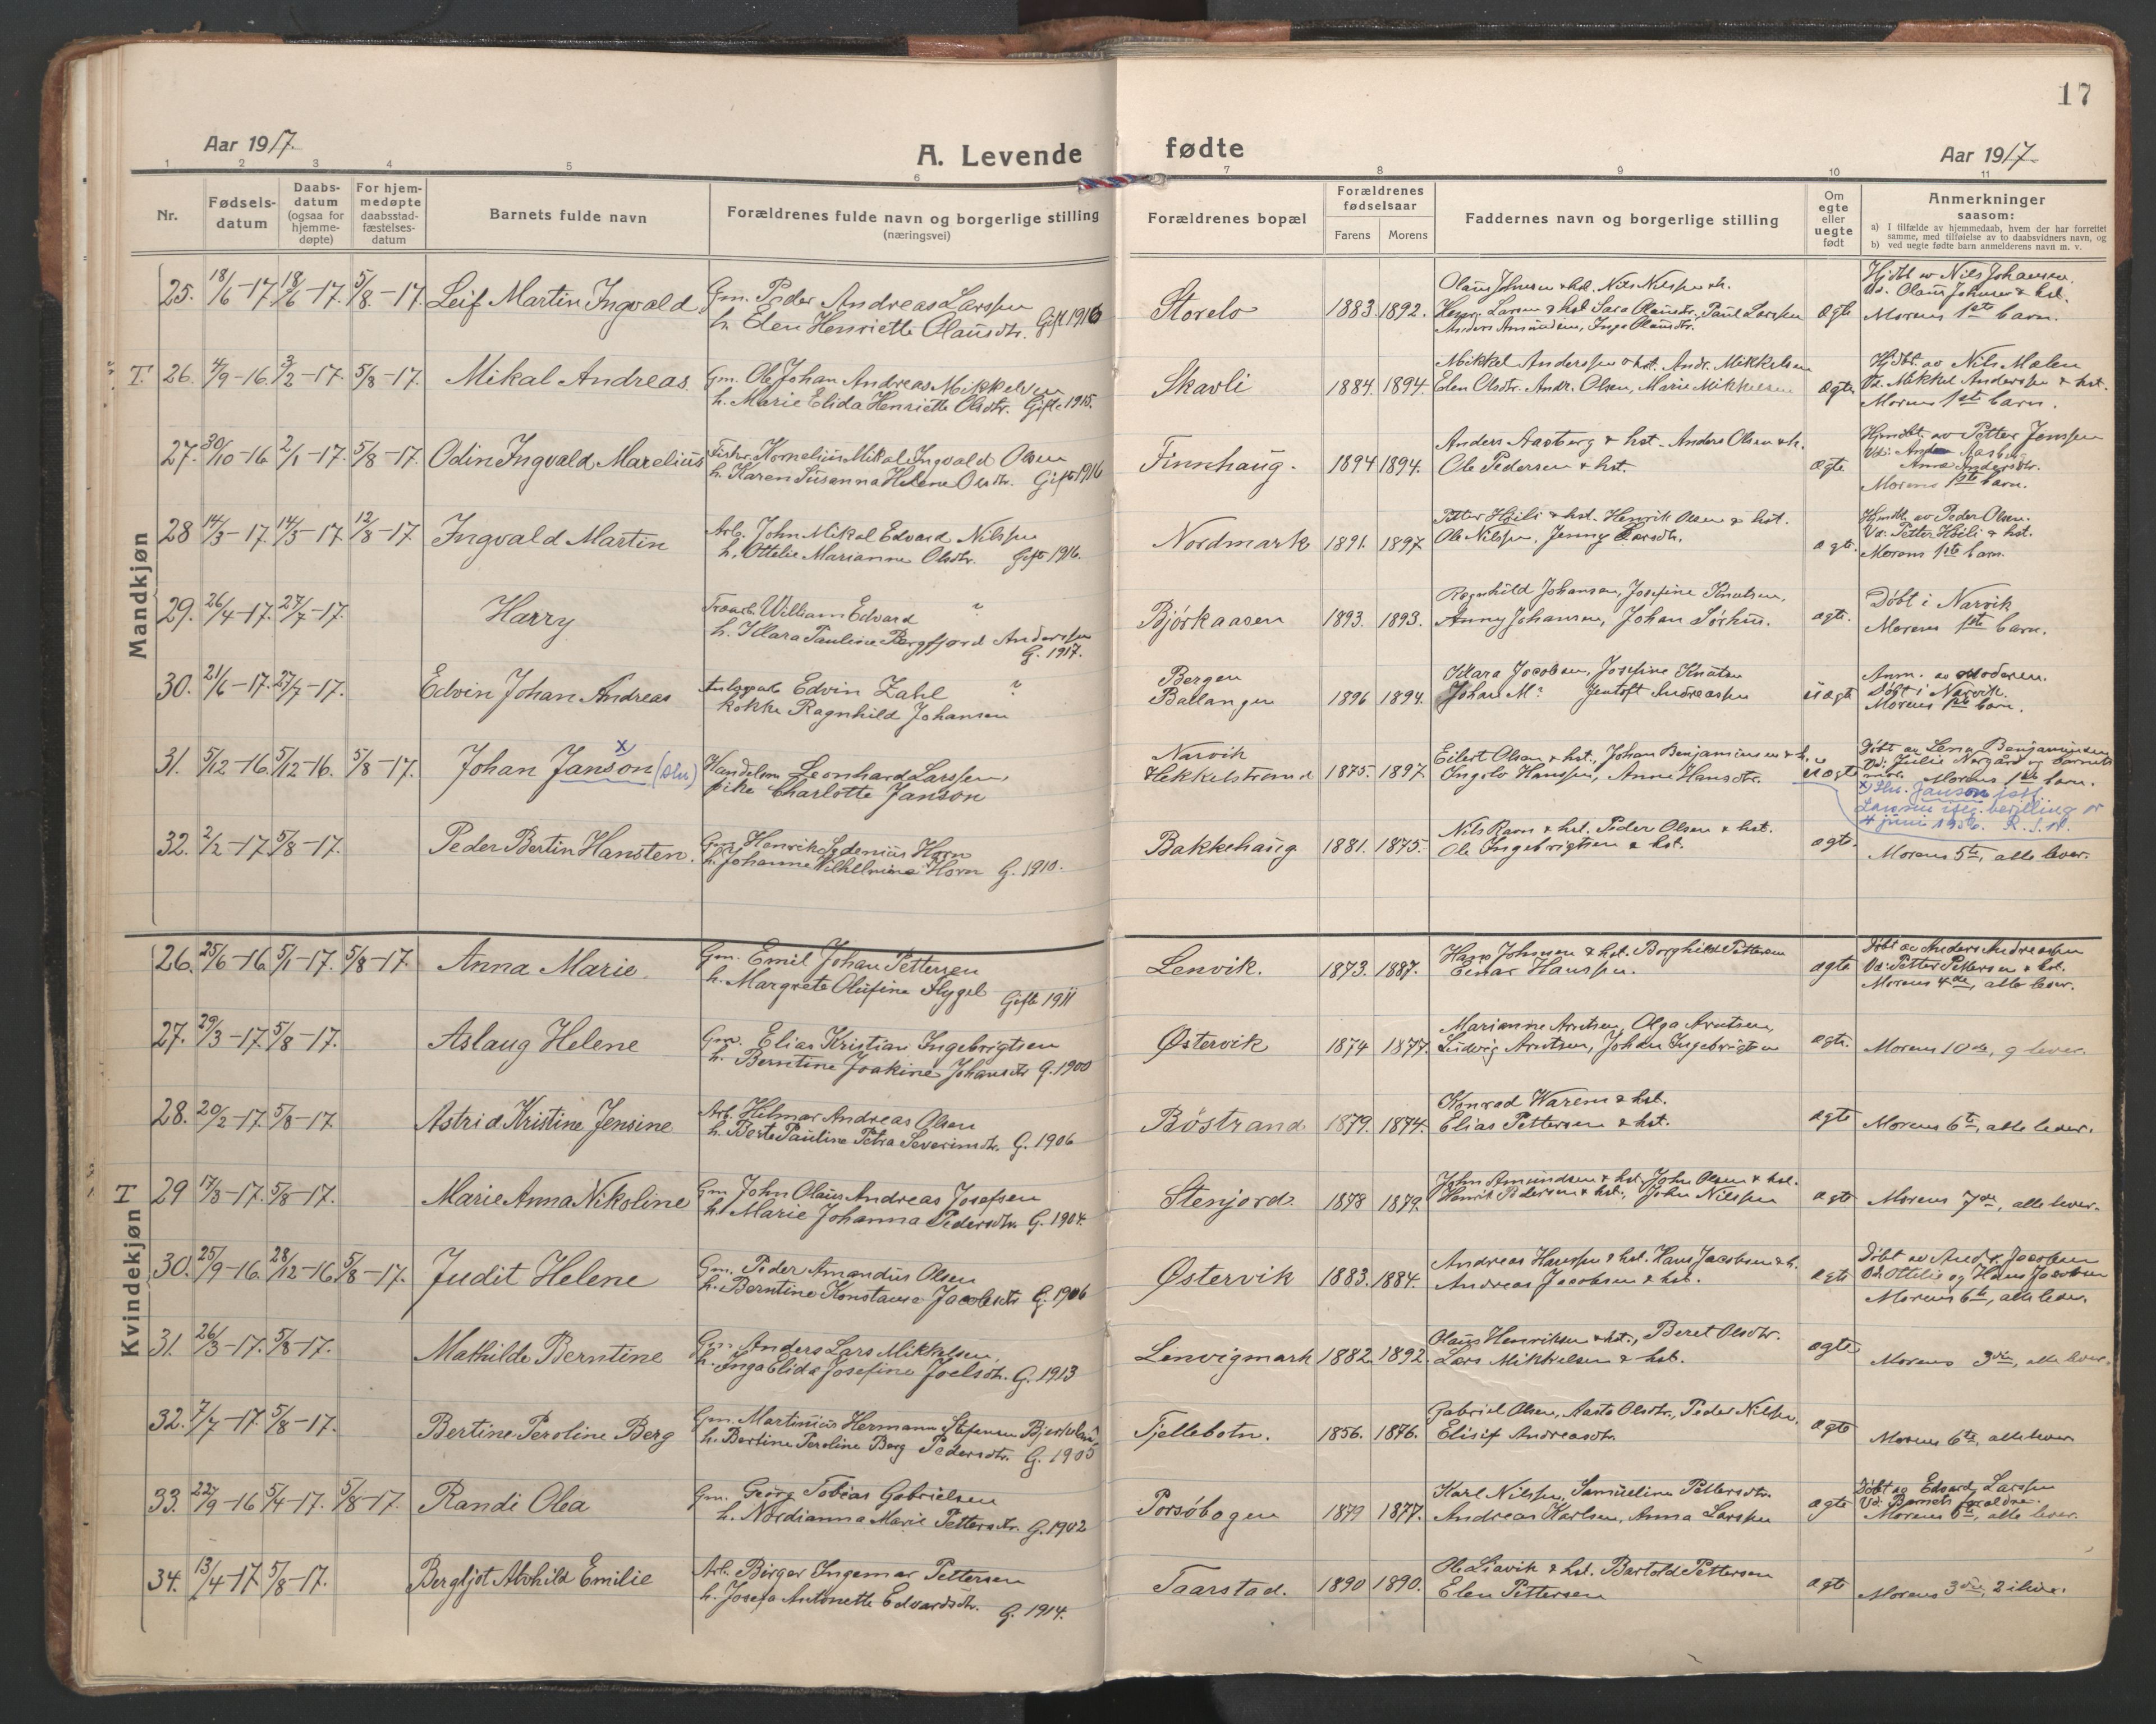 17
Aar 1917.
A. Levende
fødte
Aar 1917.
1 2 3 4 5 6 7 8 9 10 11
Nr.
Fødsels-
datum
Daabs-
datum
(ogsaa for
hjemme-
døpte)
For hjem-
medøpte
daabsstad-
fæstelses-
datum
Barnets fulde navn
Forældrenes fulde navn og borgerlige stilling
(næringsvei)
Forældrenes bopæl
Forældrenes
fødselsaar
Farens Morens
Faddernes navn og borgerlige stilling
Om
egte
eller
uegte
født
Anmerkninger
saasom:
a) I tilfælde av hjemmedaab, hvem der har forrettet
samme, med tilføielse av to daabsvidners navn, og
b) ved uegte fødte barn anmelderens navn m. v.
Mandkjøn
25. 18/6-17. 18/6-17. 5/8-17. Leif Martin Ingvald.
Gm. Peder Andreas Larssen
h. Elen Henriette Olausdtr. Gift 1916
Storelv 1883. 1892.
Olaus Johnsen & hst. Nils Nilssen & h.
Henr. Larsen & hst Sara Olausdtr. Paul Larssen
Anders Amundsen, Inga Olausdtr.
ægte
Hjdbt av Nils Johansen.
Vd. Olaus Johnsen & hst.
Morens 1ste barn.
T. 26. 4/9-16. 3/2-17. 5/8-17. Mikal Andreas.
Gm. Ole Johan Andreas Mikkelsen
h. Marie Elida Henriette Olsdtr. Gifte 1915.
Skavli 1884. 1894.
Mikkel Anderssen & hst. Andr. Mikkelsen
Elen Olsdtr. Andr. Olsen, Marie Mikkelsen
ægte
Hjdbt av Nils Molen
Vd. Mikkel Anderssen & hst.
Morens 1ste barn.
27. 30/10-16 2/1-17. 5/8-17. Odin Ingvald Marelius
Fisker Kornelius Mikal Ingvald Olsen
h. Karen Susanna Helene Olsdtr. Gift 1916
Finnhaug. 1894 1894.
Anders Aasberg & hst. Anders Olsen & h.
Ole Pedersen & hst.
ægte
Hjmdbt. av Petter Jenssen
Vd: Anders Aasberg
Anna Andersdtr.
Morens 1ste barn.
28 14/3-17. 14/5-17 12/8-17 Ingvald Martin
Arb. John Mikal Edvard Nilssen
h. Ottelie Marianne Olsdtr. Gift 1916.
Nordmark 1891. 1897
Petter Høili & hst. Henrik Olsen & hst.
Ole Nilssen, Jenny Larsdtr.
ægte.
Hjmdbt. av Peder Olsen.
Vd: Petter Høili & hst.
Morens 1ste barn.
29. 26/4-17. 27/7-17. Harry
William Edvard ?
h. Klara Pauline Bergfjord Anderssen
G. 1917.
Bjørkaasen 1893. 1893.
Ragnhild Johansen, Josefine Knutsen,
Anny Johansen, Johan Sørhus.
ægte.
Døbt i Narvik
Morens 1ste barn.
30. 21/6-17. 27/7-17. Edvin Johan Andreas
Anlægsarb. Edvin Zahl ?
kokke Ragnhild Johansen
Bergen
Ballangen 1896 1894.
Klara Jacobsen, Josefine Knutsen
Johan M? Jentoft Andreassen
uægte
Anm. av Moderen.
Døbt i Narvik.
Morens 1ste barn.
31. 5/12-16. 5/12-16. 5/8-17. Johan Janson x) (sln)
Handelsm. Leonhard Larssen,
pike Charlotte Janson
Narvik
Hekkelstrand 1875. 1897.
Eilert Olsen & hst., Johan Benjaminsen & h.
Ingolv Hanssen, Anna Hansdtr.
uægte
Døbt av Lena Benjaminsen
Vd: Julie Norgård og barnets
mor. Morens 1ste barn.
x) Sln. Janson
Larssen iflg. bevilling av
4 juni 1956. R. S. N.
32. 2/2-17. 5/8-17. Peder Bertin Hansten.
Gm. Henrik Horn
h. Johanne Wilhelmina Horn G. 1910.
Bakkehaug 1881. 1875.
Nils Ravn & hst. Peder Olsen & hst.
Ole Ingebrigtsen & hst.
ægte.
Morens 5te, alle lever.
Kvindekjøn
26. 25/6-16. 5/1-17. 5/8-17. Anna Marie.
Gm. Emil Johan Pettersen
h. Margrete Olufine Flygel Gifte 1911
Lenvik. 1873. 1887.
Hans Johnsen & hst. Borghild Pettersen
Einar Hanssen.
ægte
Døbt av Anders Andreassen
Vd: Petter Pettersen & hst.
Morens 4de, alle lever.
27. 29/3-17. 5/8-17. Aslaug Helene
Gm. Elias Kristian Ingebrigtsen
h. Berntine Joakine Johansdtr G. 1900
Østervik 1874 1877.
Marianne Arntsen, Olga Arntsen,
Ludvig Arntsen, Johan Ingebrigtsen
ægte.
Morens 10de, 9 lever.
28. 20/2-17. 5/8-17. Astrid Kristine Jensine
Arb. Helmar Andreas Olsen
h. Berte Pauline Petra Severinsdtr. G. 1906
Bøstrand 1879. 1874.
Konrad Warem & hst.
Elias Pettersen & hst.
ægte
Morens 6te, alle lever.
T 29 17/3-17. 5/8-17. Marie Anna Nikoline
Gm John Olaus Andreas Josefsen
h. Marie Johanna Pedersdtr. G. 1904.
Stenjord. 1878 1879.
John Amundsen & hst. John Olsen & hst.
Henrik Pedersen & hst., John Nilssen
ægte
Morens 7de, alle lever.
30. 25/9-16. 28/12-16 5/8-17. Judit Helene
Gm. Peder Amandus Olsen
h. Berntine Konstanse Jacobsdtr G. 1906
Østervik 1883. 1884.
Andreas Hanssen & hst. Hans Jacobsen & h.
Andreas Jacobsen & hst.
ægte
Døbt av Andr. Jacobsen
Vd: Ottelie og Hans Jacobsen
Morens 6te, alle lever.
31. 26/3-17. 5/8-17. Mathilde Berntine
Gm. Anders Lars Mikkelsen,
h. Inga Elida Josefine Joelsdtr. G. 1913
Lenvigmark 1882. 1892.
Olaus Henriksen & hst., Beret Olsdtr.
Lars Mikkelsen & hst.
ægte
Morens 3die, alle lever.
32. 7/7-17. 5/8-17. Bertine Peroline Berg
Gm. Martinius Hermann Stefensen
h. Bertine Peroline Berg Pedersdtr. G. 1905
Tjellebotn. 1856. 1876.
Gabriel Olsen, Aasta Olsdtr., Peder Nilssen.
Elisif Andreasdtr.
ægte
Morens 6te, alle lever
33. 22/9-16 5/4-17. 5/8-17. Randi Olea
Gm. Georg Tobias Gabrielsen
h. Nordianna Marie Pettersdtr. G. 1902
Porsøbogen 1879 1877.
Karl Nilssen, Samueline Pettersdtr.
Andreas Karlsen, Anna Larssen
ægte
Døbt av Edvard Larssen
Vd: Barnets foreldre.
Morens 6te, alle lever.
34. 13/4-17. 5/8-17. Bergljot Alvhild Emilie
Arb. Birger Ingemar Pettersen
h. Josefa Antonette Edvardsdtr. G. 1914.
Taarstad. 1890 1890.
Ole Liavik & hst. Bartolde Pettersen
Elen Pettersen
ægte
Morens 3die, 2 i live.